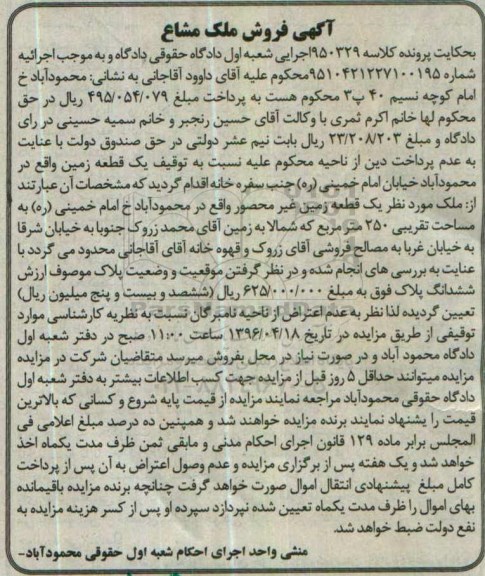 آگهی فروش ملک مشاع
بحکایت پرونده کلاسه ۹۵۰۳۲۹اجرایی شعبه اول دادگاه حقوقی دادگاه و به موجب اجرائیه
شماره ۹۵۱۰۴۲۱۲۲۷۱۰۰۱۹۵محکوم علیه آقای داوود آقاجانی به نشانی: محمودآباد خ
امام کوچه نسیم ۴۰ پ۳ محکوم هست به پرداخت مبلغ ۴۹۵/۰۵۴/۰۷۹ ریال در حق
محکوم لها خانم اکرم ثمری با وکالت آقای حسین رنجبر و خانم سمیه حسینی در رای
دادگاه و مبلغ ۲۳/۲۰۸/۲۰۳ ریال بابت نیم عشر دولتی در حق صندوق دولت با عنایت
به عدم پرداخت دین از ناحیه محکوم علیه نسبت به توقیف یک قطعه زمین واقع در
محمودآباد خیابان امام خمینی (ره) جنب سفره خانه اقدام گردید که مشخصات آن عبارتند
از: ملک مورد نظر یک قطعه زمین غیر محصور واقع در محمودآباد خ امام خمینی (ره) به
مساحت تقریبی ۲۵۰ متر مربع که شمالا به زمین آقای محمد زروک جنوبا به خیابان شرقا
به خیابان غربا به مصالح فروشی آقای زروک و قهوه خانه آقای آقاجانی محدود می گردد با
عنایت به بررسی های انجام شده و در نظر گرفتن موقعیت و وضعیت پلاک موصوف ارزش
ششدانگ پلاک فوق به مبلغ ۶۲۵/۰۰۰/۰۰۰ ریال (ششصد و بیست و پنج میلیون ریال)
تعیین گردیده لذا نظر به عدم اعتراض از ناحیه نامبرگان نسبت به نظریه کارشناسی موارد
توقیفی از طریق مزایده در تاریخ ۱۳۹۶/۰۴/۱۸ ساعت ۱۱:۰۰ صبح در دفتر شعبه اول
دادگاه محمود آباد و در صورت نیاز در محل بفروش میرسد متقاضیان شرکت در مزایده
مزایده میتوانند حداقل ۵ روز قبل از مزایده جهت کسب اطلاعات بیشتر به دفتر شعبه اول
دادگاه حقوقی محمودآباد مراجعه نمایند مزایده از قیمت پایه شروع و کسانی که بالاترین
قیمت را پشنهاد نمایند برنده مزایده خواهند شد و همپنین ده درصد مبلغ اعلامی فی
المجلس برابر ماده ۱۲۹ قانون اجرای احکام مدنی و مابقی ثمن ظرف مدت یکماه اخذ
خواهد شد و یک هفته پس از برگزاری مزایده و عدم وصول اعتراض به آن پس از پرداخت
کامل مبلغ پیشنهادی انتقال اموال صورت خواهد گرفت چنانچه برنده مزایده باقیمانده
بهای اموال را ظرف مدت یکماه تعیین شده نپردازد سپرده او پس از کسر هزینه مزایده به
نفع دولت ضبط خواهد شد.
منشی واحد اجرای احکام شعبه اول حقوقی محمودآباد-